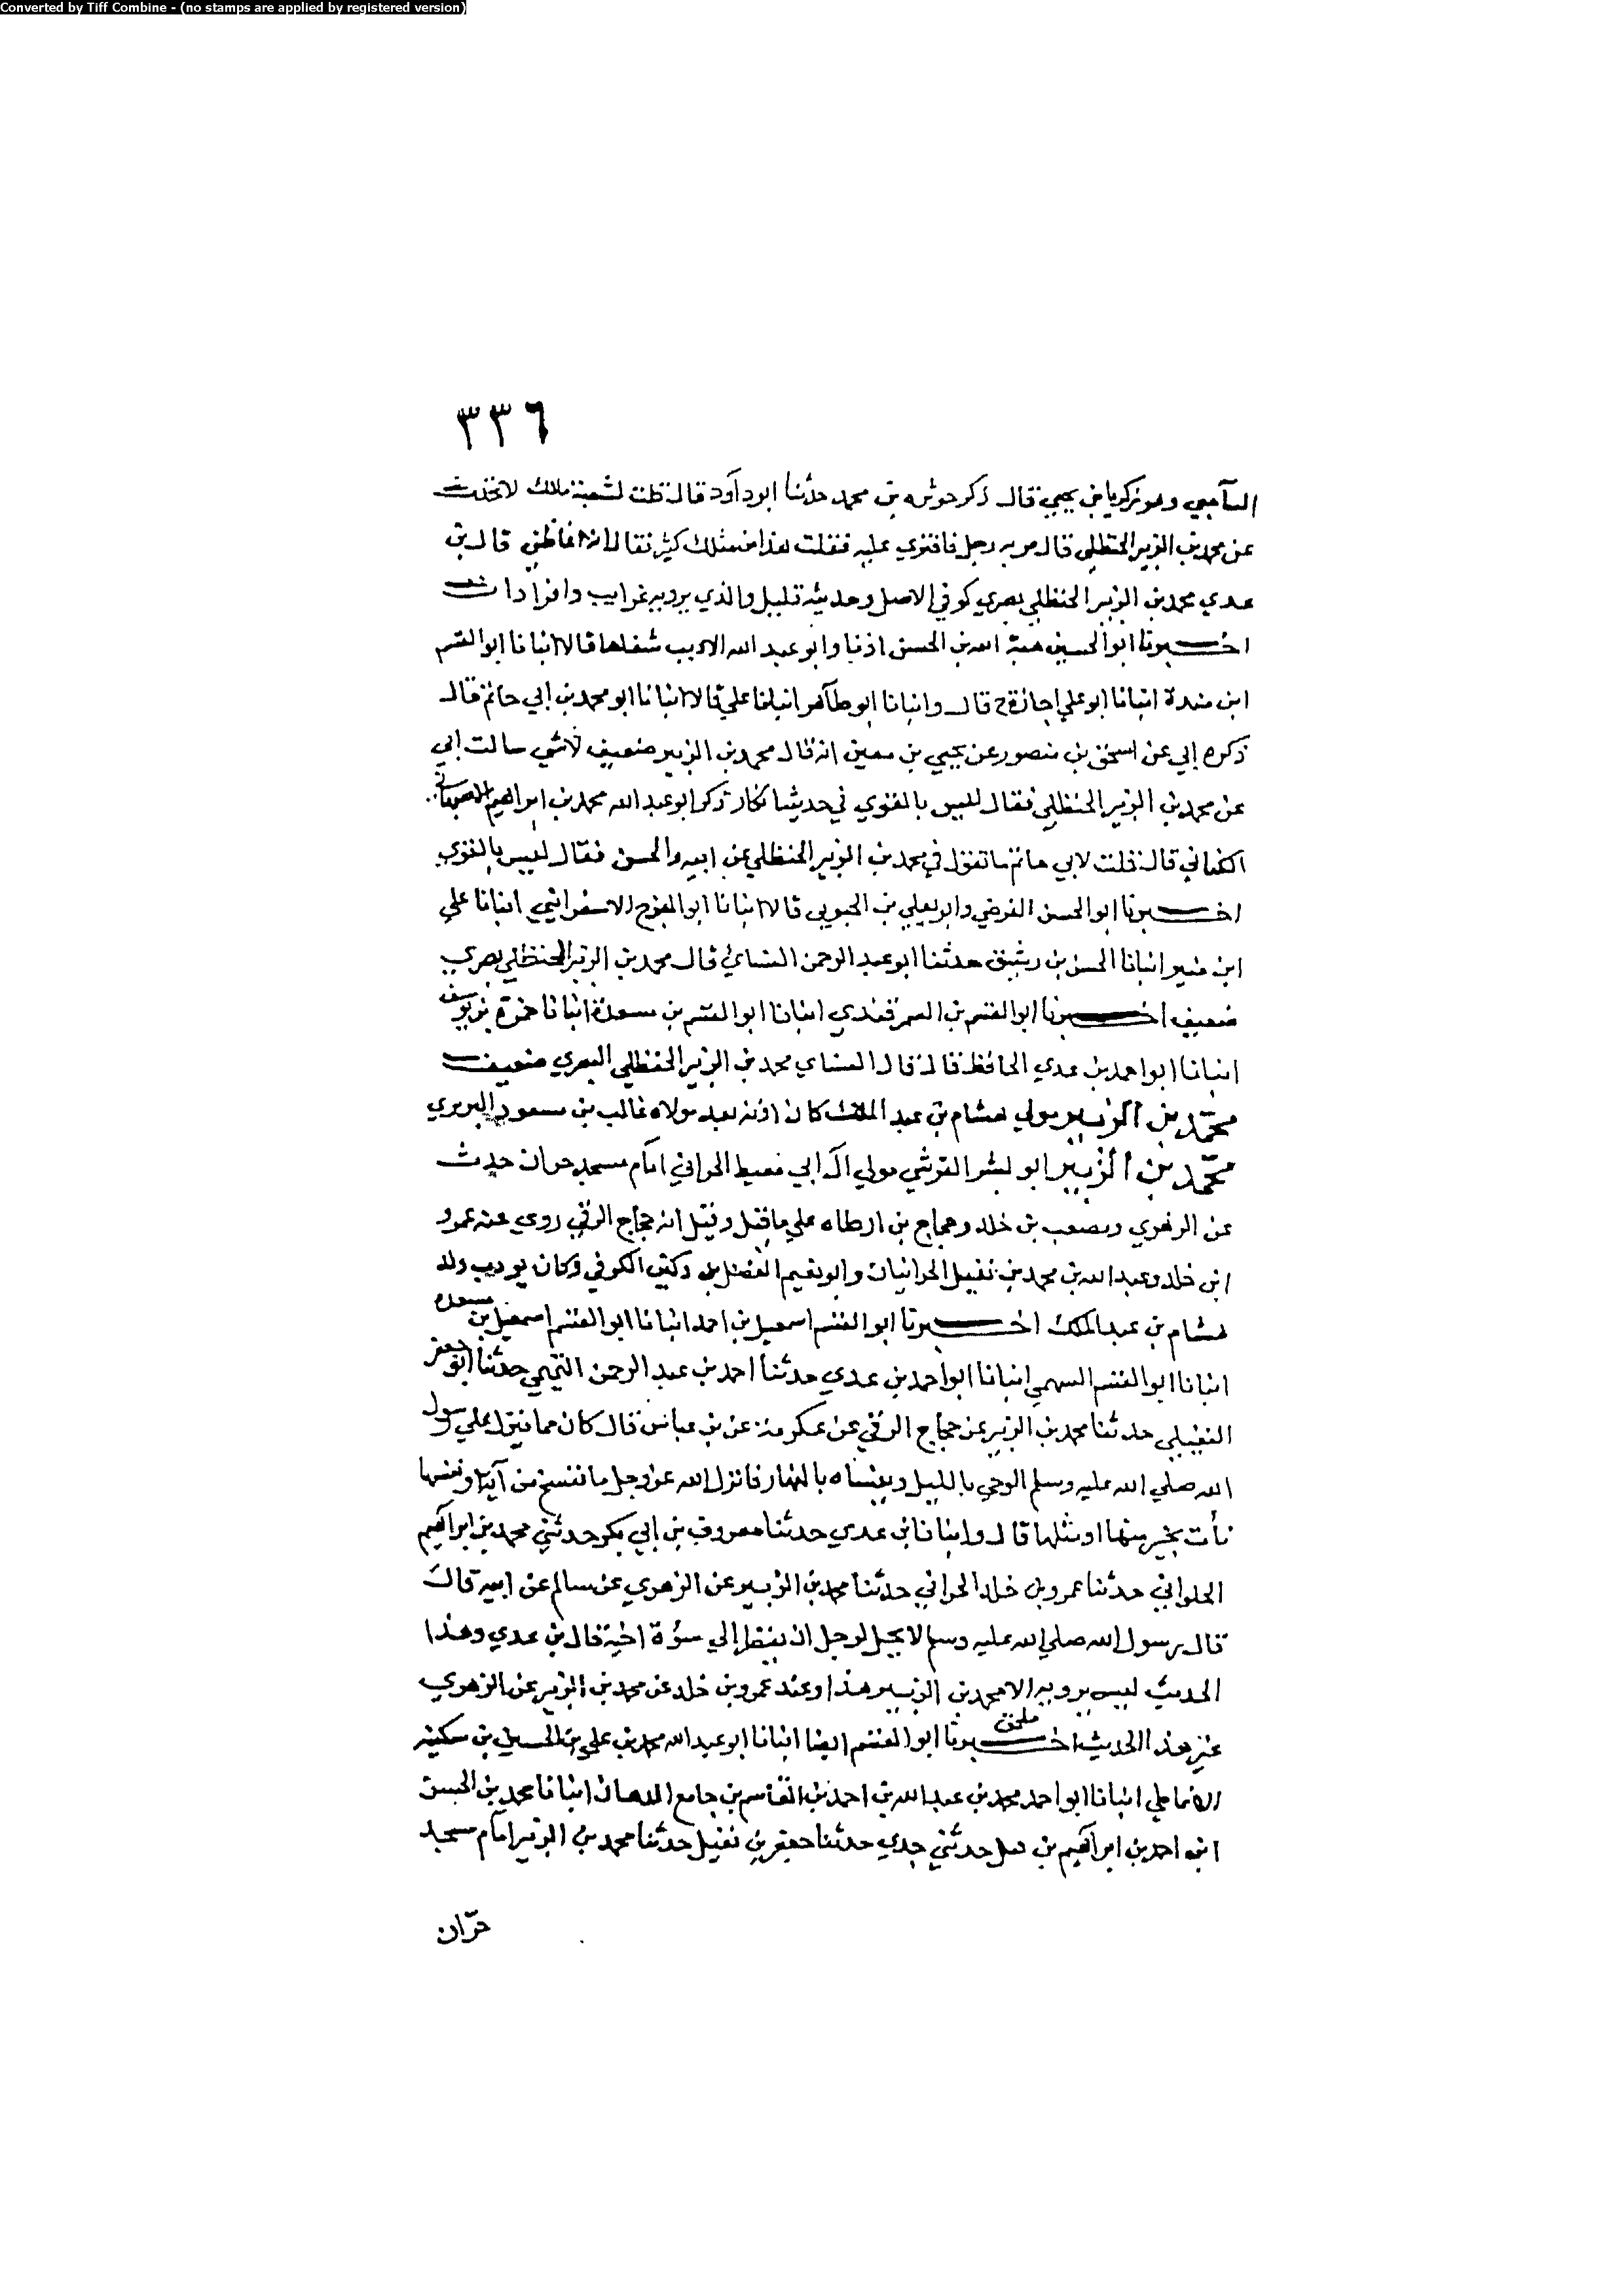 Converted by Tiff Combine - (no stamps are applied by registered version)
٣٣٦
الساجي وهو زكريا بن يحيى قال ذكر حوثره بن محمد حدثنا ابو داود قال قلت لشعبة مالك لا تحدث
عن محمد بن الزبير الحنظلي قال مر به رجل فافترى عليه فقلت هذا من مثلك كثير فقال انه غاظني قال بن
عدي محمد بن الزبير الحنظلي بصري كوفي الاصل وحديثه قليل والذي يرويه غرايب وافرادات
اخبرنا ابو الحسين هبة الله بن الحسن اذنا وابو عبد الله الاديب شفاها قالا انبانا ابو القسم
ابن مندة انبانا ابو علي اجازة ح قال وانبانا ابو طاهر انبانا علي قالا انبانا ابو محمد بن ابي حاتم قال
ذكره ابي عن اسحق بن منصور عن يحيي بن معين انه قال محمد بن الزبير ضعيف لا شي سالت ابي
عن محمد بن الزبير الحنظلي فقال ليس بالقوي في حديثه انكار ذكر ابو عبد الله محمد بن ابراهيم
الكناني قال قلت لابي حاتم ما تقول في محمد بن الزبير الحنظلي عن ابيه والحسن فقال ليس بالقوي
اخبرنا ابو الحسن الفرضي وابو يعلي بن الحبوبي قالا انبانا ابو الفرج الاسفرائيني انبانا علي
ابن منير انبانا الحسن بن رشيق حدثنا ابو عبد الرحمن النسائي قال محمد بن الزبير الحنظلي بصري
ضعيف اخبرنا ابو القسم بن السمرقندي انبانا ابو القسم بن مسعدة انبانا حمزة بن يوسف
انبانا ابو احمد بن عدي الحافظ قال قال النساي محمد بن الزبير الحنظلي البصري ضعيف
محمد بن الزبير مولي هشام بن عبد الملك كان اذنه بعد مولاه غالب بن مسعود البربري
محمد بن الزبير ابو بشر القرشي مولي آل ابي معيط الحراني امام مسجد حران حدث
عن الزهري ومصعب بن خلد وحجاج بن ارطاه علي ما قيل وقيل انه حجاج الرقي روي عنه عمرو
ابن خلد وعبد الله بن محمد بن نفيل الحرانيان وابو نعيم الفضل بن دكين الكوفي وكان يودب ولد
هشام بن عبد الملك اخبرنا ابو القسم اسمعيل بن احمد انبانا ابو القسم اسمعيل بن مسعدة
انبانا ابو القسم السهمي انبانا ابو احمد بن عدي حدثنا احمد بن عبد الرحمن التيمي حدثنا ابو جعفر
النفيلي حدثنا محمد بن الزبير عن حجاج الرقي عن عكرمة عن بن عباس قال كان مما ينزل علي رسول
الله صلي الله عليه وسلم الوحي بالليل وينساه بالنهار فانزل الله عز وجل ما ننسخ من آية او ننسها
نأت بخير منها او مثلها قال وانبانا بن عدي حدثنا معروف بن ابي بكر حدثني محمد بن ابراهيم
الحلواني حدثنا عمرو بن خلد الحراني حدثنا محمد بن الزبير عن الزهري عن سالم عن ابيه قال
قال رسول الله صلي الله عليه وسلم لا يحل لرجل ان ينظر الي سؤة اخيه قال بن عدي وهذا
الحديث ليس يرويه الا محمد بن الزبير هذا وعند عمرو بن خلد عن محمد بن الزبير عن الزهري
ملحق
غير هذا الحديث اخبرنا ابو القسم ايضا انبانا ابو عبد الله محمد بن علي بن الحسين بن سكينه
الانماطي انبانا ابو احمد محمد بن عبد الله بن احمد بن القاسم بن جامع الدهان انبانا محمد بن الحسن
ابن احمد بن ابراهيم بن حدثني جدي حدثنا جعفر بن نفيل حدثنا محمد بن الزبير امام مسجد
حرّان